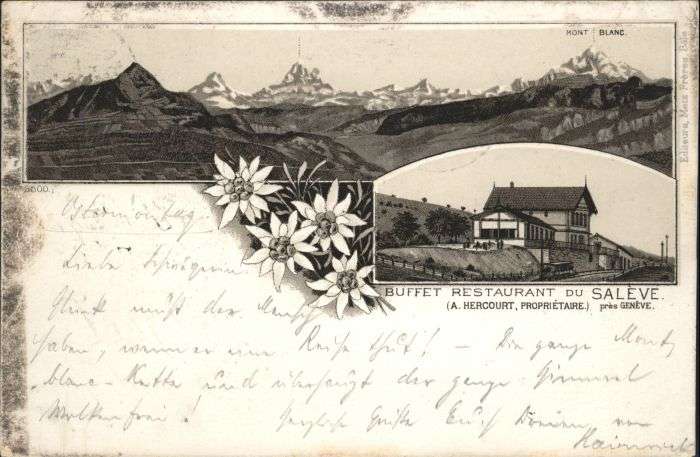 MONT BLANC.
Editeurs, Metz Frères, Bâle.
5600.
BUFFET RESTAURANT DU SALÈVE.
(A. HERCOURT, PROPRIÉTAIRE.) près GENÈVE.
Ostermontag
Liebe Schwägerin
Glück muß der Mensch
haben, wenn er eine Reise thut! – Die ganze Mont
blanc-Kette und überhaupt der ganze Himmel
Wolkenfrei! Herzliche Grüße Euch Beiden von
Heinrich